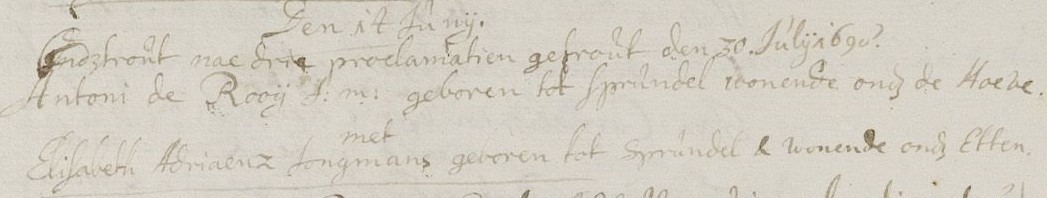 Den 14 Junij.
Ondtrout nae drie proclamatien getrout den 30. Julij 1690.
Antoni de Rooij J: m: geboren tot sprundel wonende ond de Hoeve.
met
Elisabeth Adriaenz Jongmans geboren tot Sprundel & wonende ond Etten.